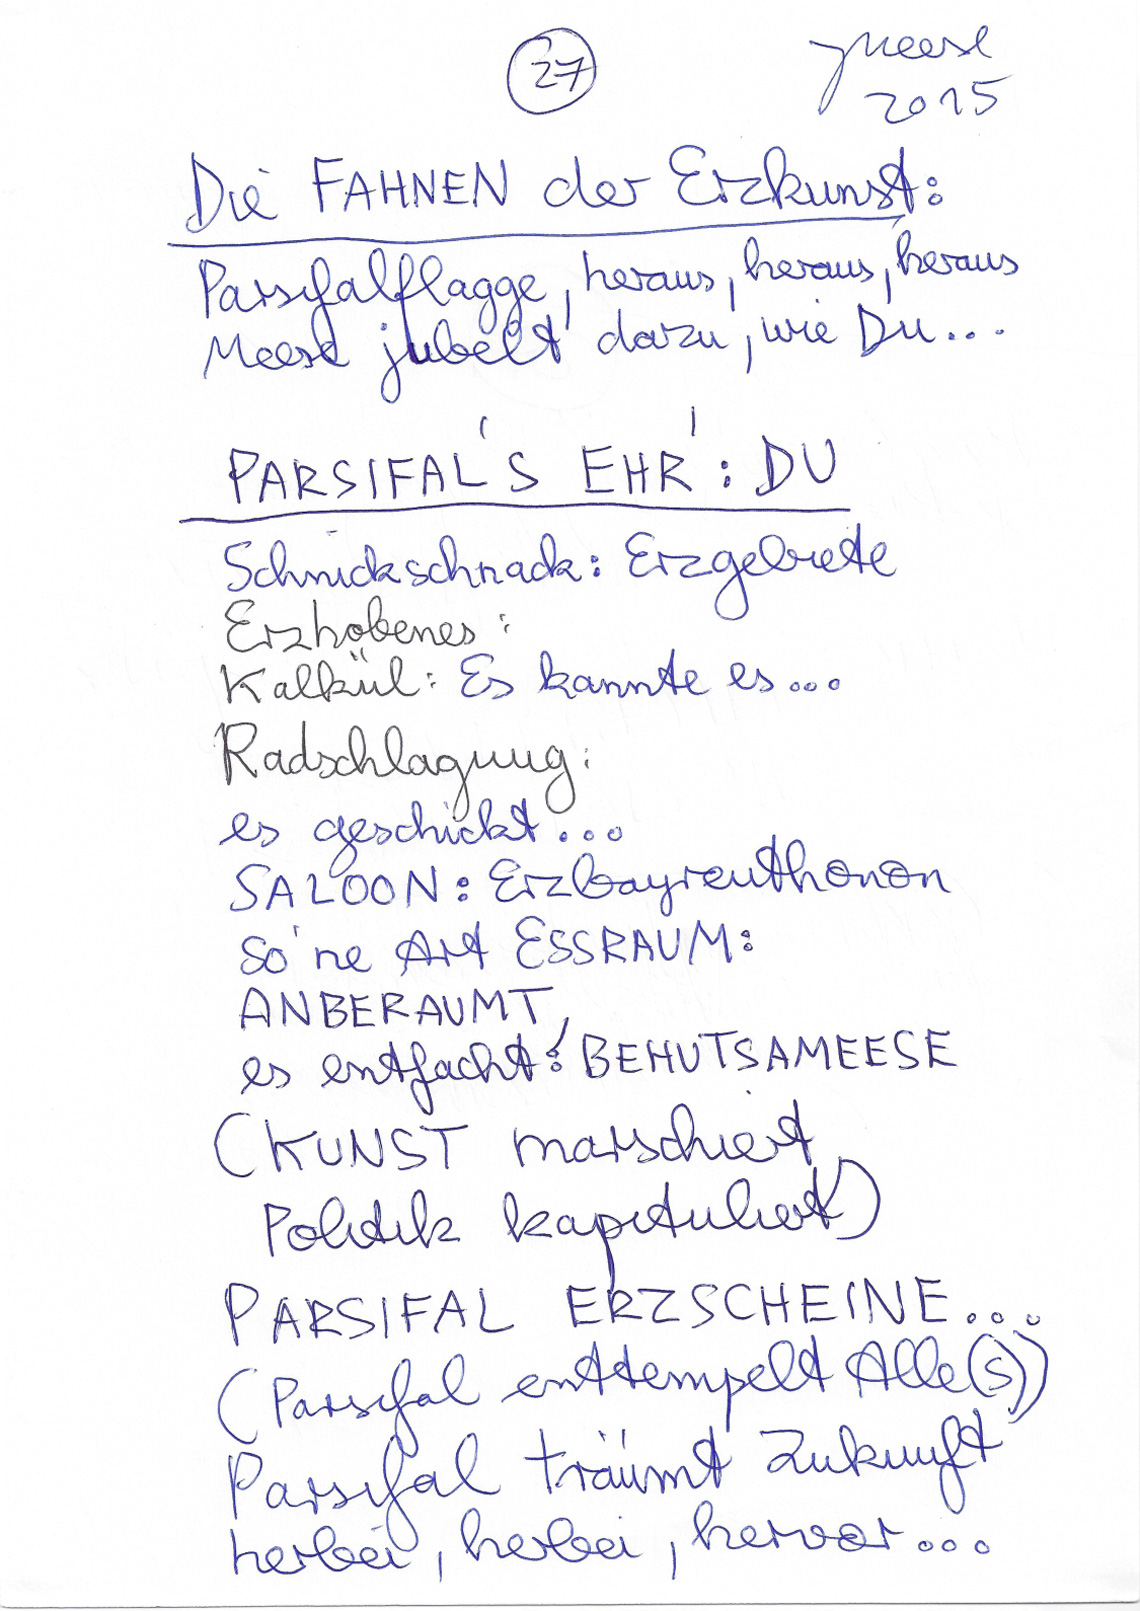 27
JMeese
2015
Die FAHNEN der Erzkunst:
Parsifalflagge, heraus, heraus, heraus
Meese jubelt dazu, wie Du...
PARSIFAL'S EHR': DU
Schnickschnack: Erzgebiete
Erzhobenes:
Kalkül: Es kannte es...
Radschlagung:
es geschickt...
SALOON: Erzbayreuthonon
So'ne Art ESSRAUM:
ANBERAUMT,
es entfacht: BEHUTSAMEESE
(KUNST marschiert
Politik kapituliert)
PARSIFAL ERZSCHEINE...
(Parsifal enttempelt Alle(s))
Parsifal träumt Zukunft
herbei, herbei, hervor...